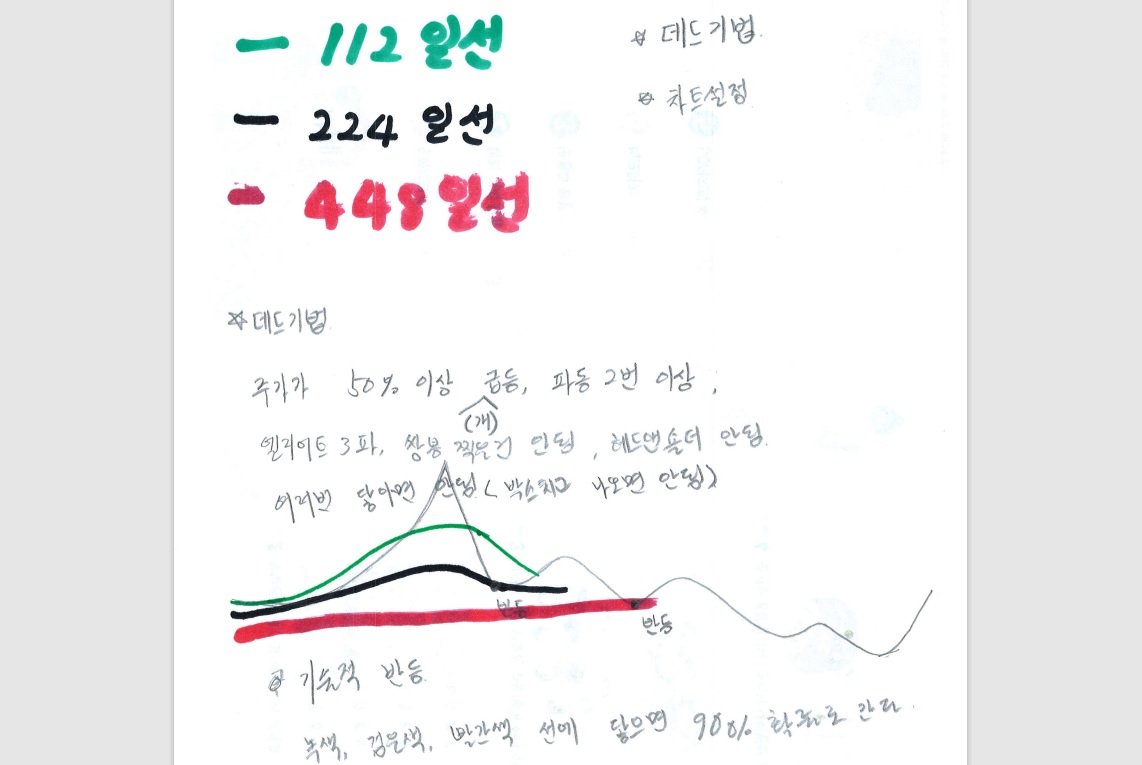 112 일선
☆ 데드기법.
224 일선
☆ 차트설정
448 일선
☆ 데드기법
주가가 50% 이상 급등, 파동 2번 이상,
(개)
엘리어트 3파, 쌍봉 찍은건 안됨, 헤드앤숄더 안됨.
여러번 닿아면 안됨 (박스치고 나오면 안됨)
반등
반등
기술적 반등.
녹색, 검은색, 빨간색 선에 닿으면 90% 확률로 간다.